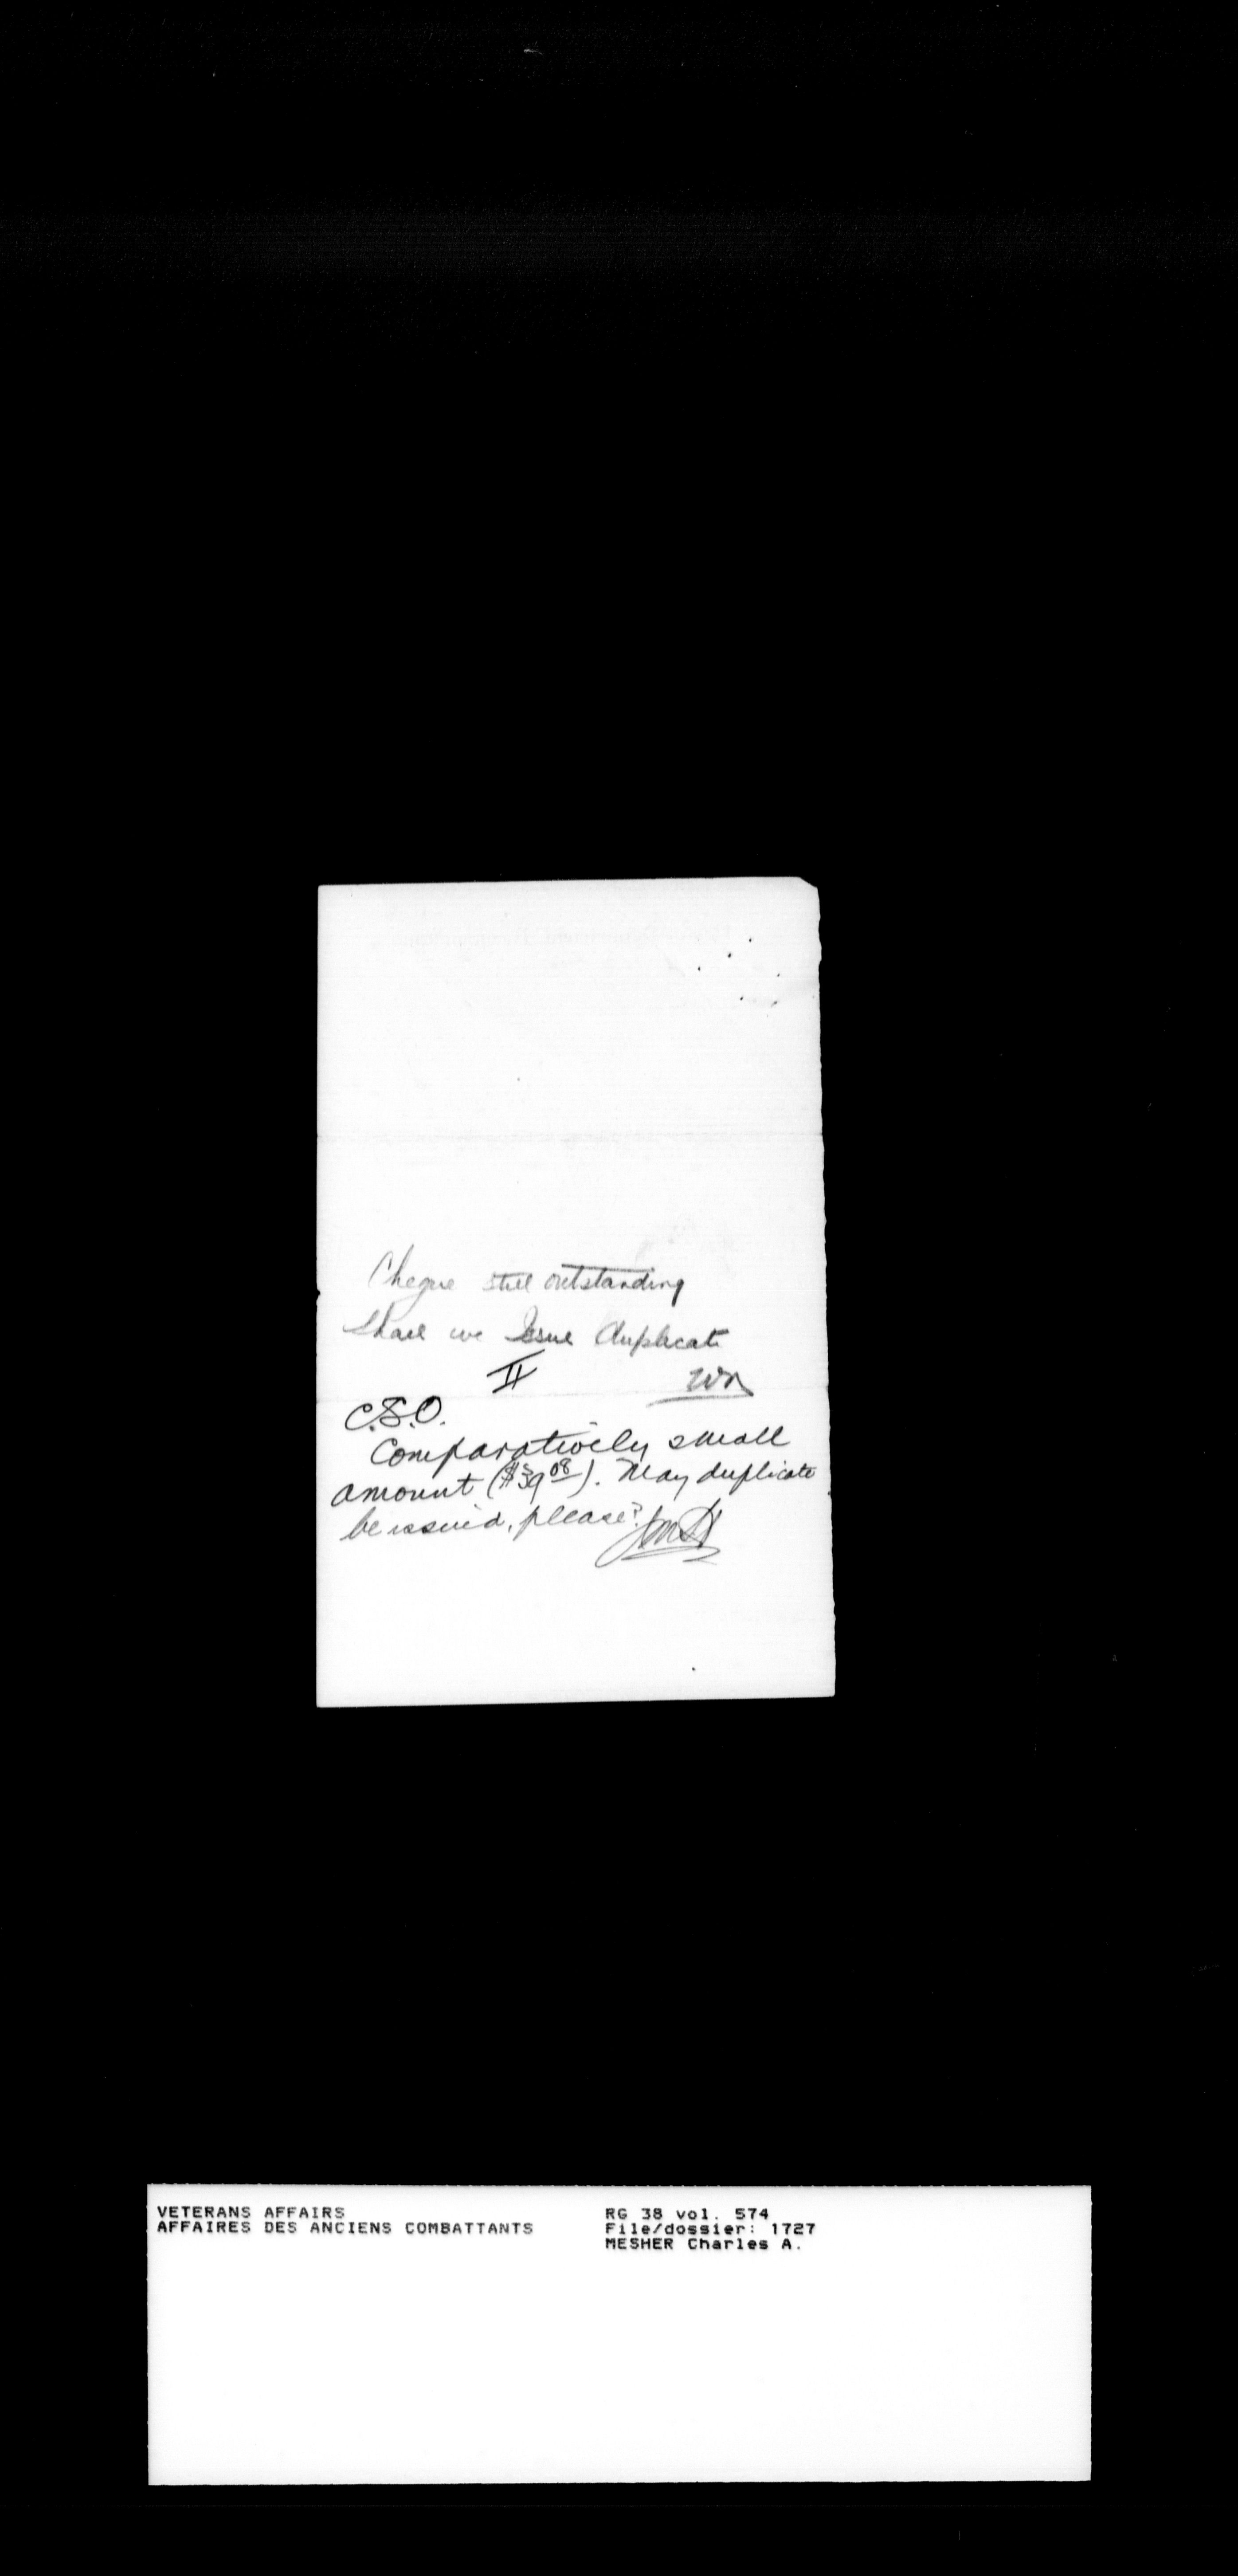 Cheque still outstanding
Shall we Issue duplicate
II WR
C.S.O.
Comparatively small
amount ($39.08). May duplicate
be issued, please?
VETERANS AFFAIRS
AFFAIRES DES ANCIENS COMBATTANTS
RG 38 vol. 574
File/dossier: 1727
MESHER Charles A.